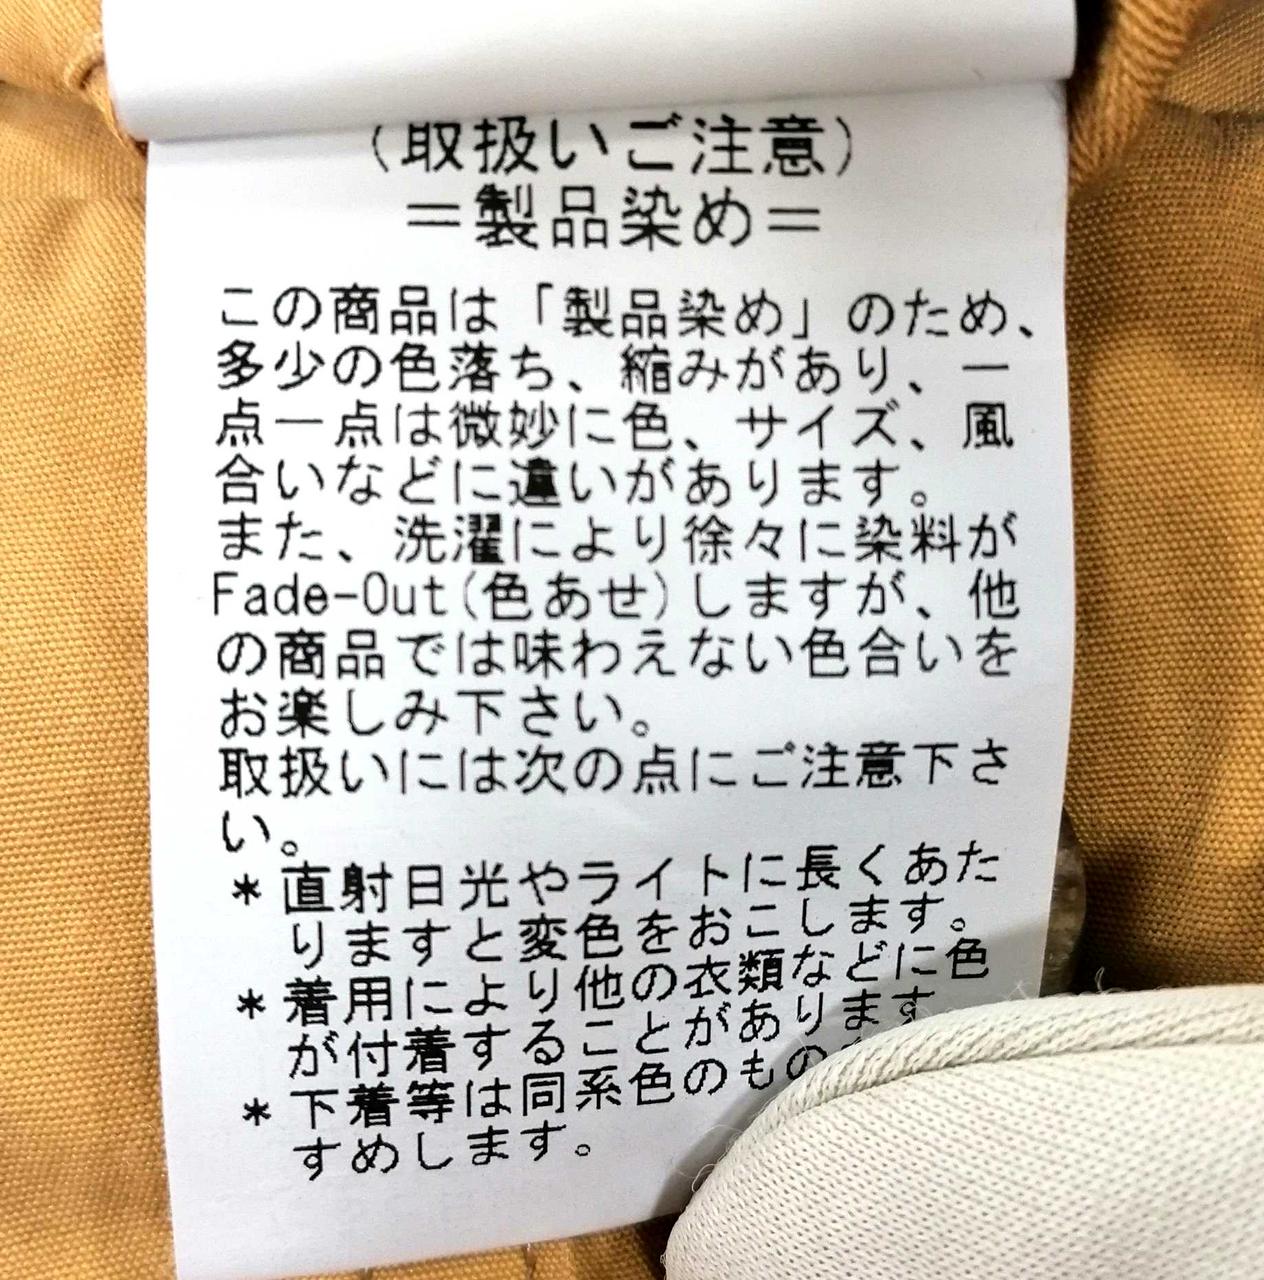 （取扱いご注意）
＝製品染め＝
この商品は「製品染め」のため、
多少の色落ち、縮みがあり、一
点一点は微妙に色、サイズ、風
合いなどに違いがあります。
また、洗濯により徐々に染料が
Fade-Out(色あせ)しますが、他
の商品では味わえない色合いを
お楽しみ下さい。
取扱いには次の点にご注意下さ
い。
＊直射日光やライトに長くあた
りますと変色をおこします。
＊着用により他の衣類などに色
が付着することがあります
＊下着等は同系色のもの
すめします。